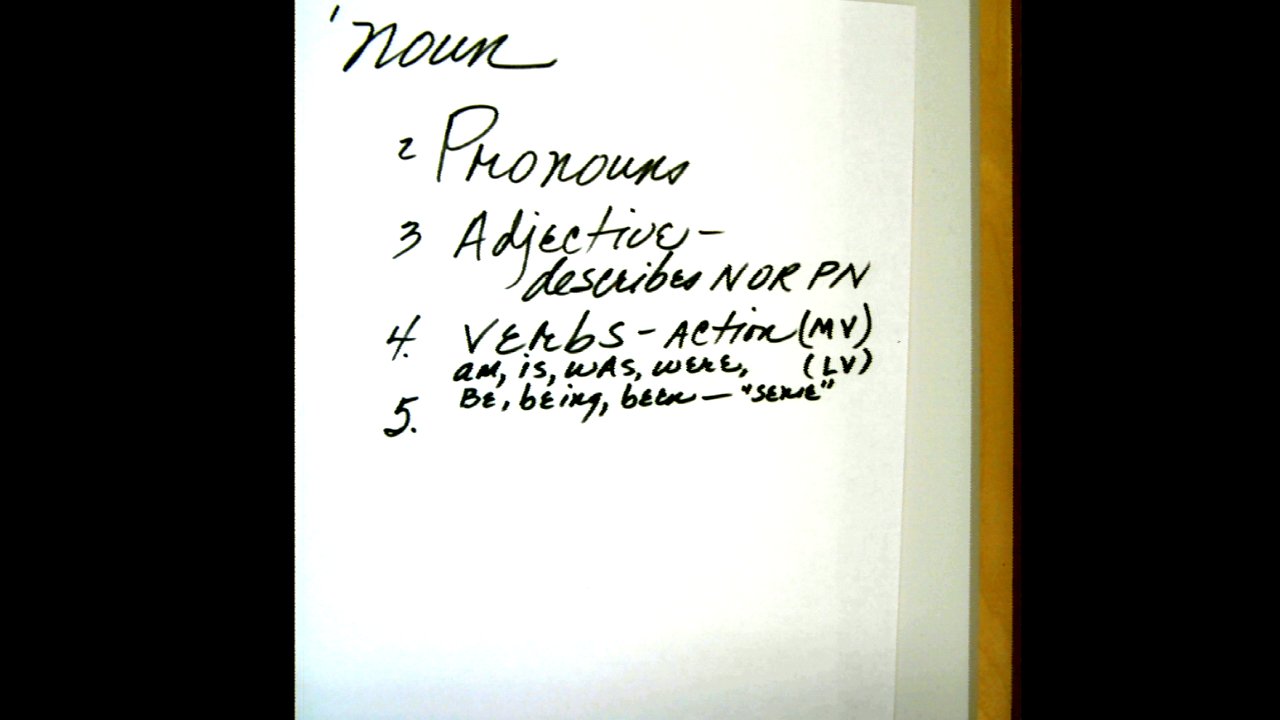 1 noun
2 Pronouns
3 Adjective -
describes N OR PN
4. VERbS - Action (MV)
am, is, was, were, (LV)
BE, being, been — "sense"
5.